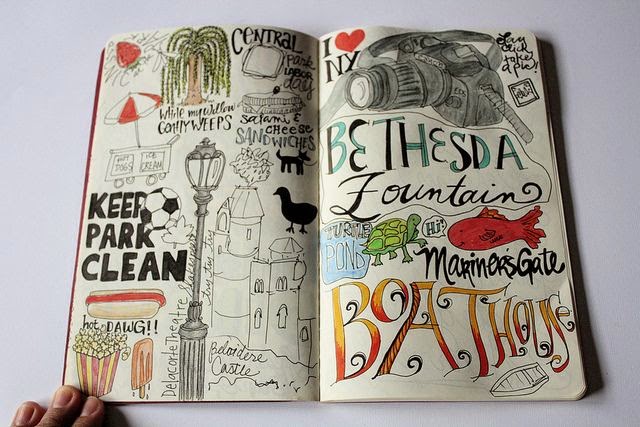 CENTRAL
Park
LABOR
day
While my Willow
Gently WEEPS
Salami &
cheese
SANDWICHES
HOT
DOGS
ICE
CREAM
KEEP
PARK
CLEAN
hot DAWG!!
Delacorte Theatre
Belvidere
Castle
I ♥
NY
BETHESDA
Fountain
TURTLE
POND
Hi!
Mariner's Gate
BOAT HOUSE